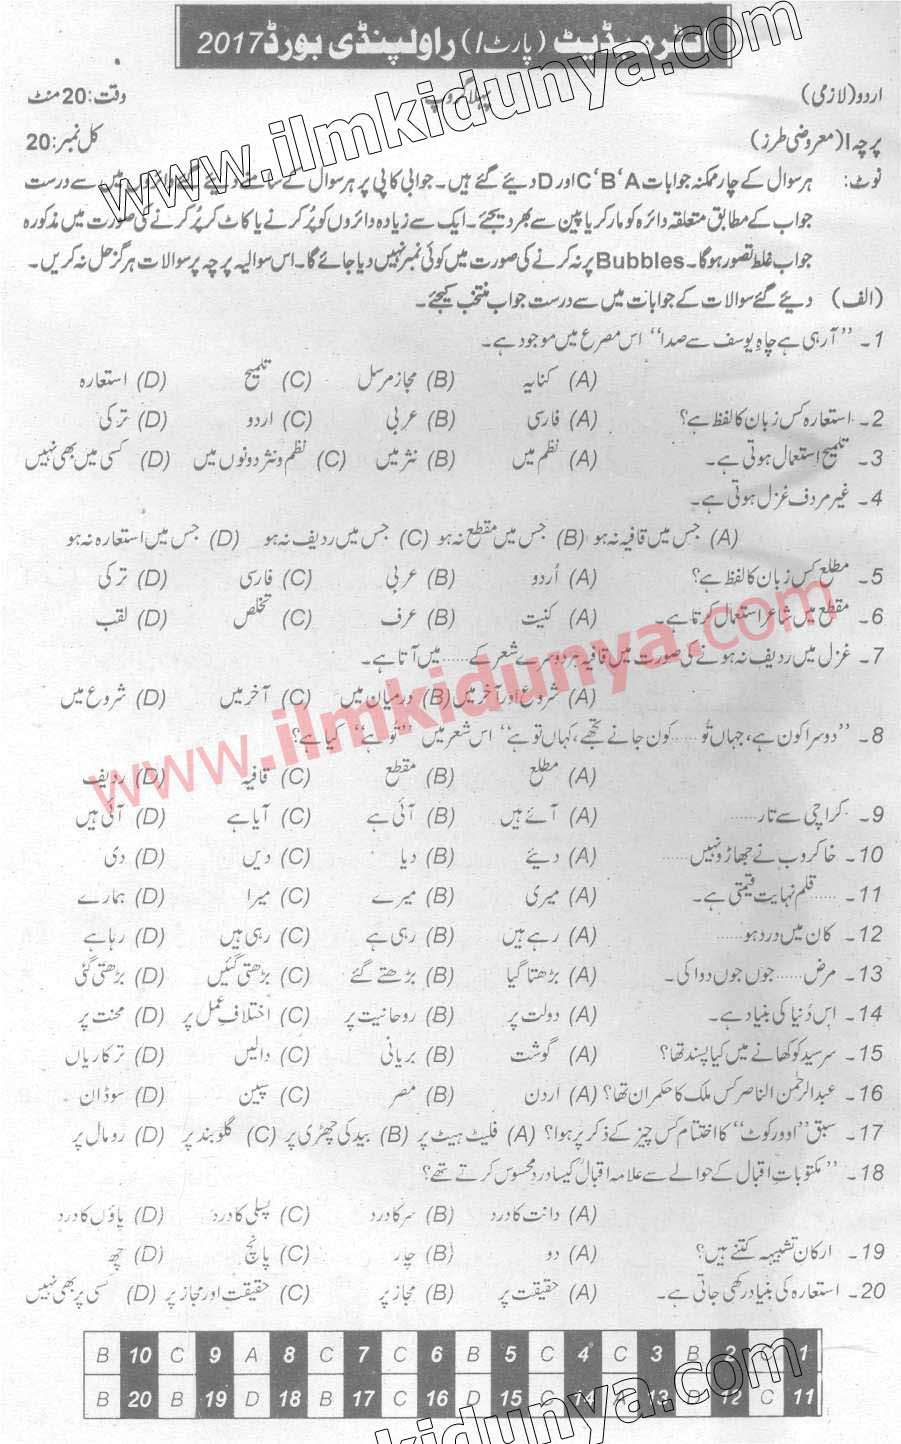 انٹرمیڈیٹ (پارٹ I) راولپنڈی بورڈ 2017
اردو (لازمی) پہلا گروپ وقت: 20 منٹ
پرچہ I (معروضی طرز) کل نمبر: 20
نوٹ: ہر سوال کے چار ممکنہ جوابات C ‘B ‘A اور D دیئے گئے ہیں۔ جوابی کاپی پر ہر سوال کے سامنے دیئے گئے دائروں میں سے درست
جواب کے مطابق متعلقہ دائرہ کو مارکر یا پین سے بھر دیجئے۔ ایک سے زیادہ دائروں کو پُر کرنے یا کاٹ کر پُر کرنے کی صورت میں مذکورہ
جواب غلط تصور ہوگا۔ Bubbles پر نہ کرنے کی صورت میں کوئی نمبر نہیں دیا جائے گا۔ اس سوالیہ پرچہ پر سوالات ہرگز حل نہ کریں۔
(الف) دیئے گئے سوالات کے جوابات میں سے درست جواب منتخب کیجئے۔
1۔ ”آ رہی ہے چاہِ یوسف سے صدا“ اس مصرع میں موجود ہے۔
(A) کنایہ (B) مجاز مرسل (C) تلمیح (D) استعارہ
2۔ استعارہ کس زبان کا لفظ ہے؟ (A) فارسی (B) عربی (C) اردو (D) ترکی
3۔ تلمیح استعمال ہوتی ہے۔ (A) نظم میں (B) نثر میں (C) نظم و نثر دونوں میں (D) کسی میں بھی نہیں
4۔ غیر مردف غزل ہوتی ہے۔
(A) جس میں قافیہ نہ ہو (B) جس میں مقطع نہ ہو (C) جس میں ردیف نہ ہو (D) جس میں استعارہ نہ ہو
5۔ مطلع کس زبان کا لفظ ہے؟ (A) اُردو (B) عربی (C) فارسی (D) ترکی
6۔ مقطع میں شاعر استعمال کرتا ہے۔ (A) کنیت (B) عرف (C) تخلص (D) لقب
7۔ غزل میں ردیف نہ ہونے کی صورت میں قافیہ ہر دوسرے شعر کے ...... میں آتا ہے۔
(A) شروع اور آخر میں (B) درمیان میں (C) آخر میں (D) شروع میں
8۔ ”دوسرا کون ہے، جہاں تُو ...... کون جانے تجھے، کہاں تو ہے“ اس شعر میں ”تُو ہے“ کیا ہے؟
(A) مطلع (B) مقطع (C) قافیہ (D) ردیف
9۔ کراچی سے تار ...... (A) آئے ہیں (B) آئی ہے (C) آیا ہے (D) آئی ہیں
10۔ خاکروب نے جھاڑو نہیں ...... (A) دیئے (B) دیا (C) دیں (D) دی
11۔ ...... قلم نہایت قیمتی ہے۔ (A) میری (B) میرے (C) میرا (D) ہمارے
12۔ کان میں درد ہو ...... (A) رہے ہیں (B) رہی ہے (C) رہی ہیں (D) رہا ہے
13۔ مرض ...... جوں جوں دوا کی۔ (A) بڑھتا گیا (B) بڑھتے گئے (C) بڑھتی گئیں (D) بڑھتی گئی
14۔ اس دُنیا کی بنیاد ہے۔ (A) دولت پر (B) روحانیت پر (C) اختلافِ عمل پر (D) محنت پر
15۔ سرسید کو کھانے میں کیا پسند تھا؟ (A) گوشت (B) بریانی (C) دالیں (D) ترکاریاں
16۔ عبدالرحمٰن الناصر کس ملک کا حکمران تھا؟ (A) اردن (B) مصر (C) سپین (D) سوڈان
17۔ سبق ”اوورکوٹ“ کا اختتام کس چیز کے ذکر پر ہوا؟ (A) فلیٹ ہیٹ پر (B) بید کی چھڑی پر (C) گلوبند پر (D) رومال پر
18۔ ”مکتوباتِ اقبال کے حوالے سے علامہ اقبالؒ کیسا درد محسوس کرتے تھے؟
(A) دانت کا درد (B) سر کا درد (C) پسلی کا درد (D) پاؤں کا درد
19۔ ارکانِ تشبیہہ کتنے ہیں؟ (A) دو (B) چار (C) پانچ (D) چھ
20۔ استعارہ کی بنیاد رکھی جاتی ہے۔ (A) حقیقت پر (B) مجاز پر (C) حقیقت اور مجاز پر (D) کسی پر بھی نہیں
B 10 C 9 A 8 C 7 C 6 B 5 C 4 C 3 B 2 C 1
B 20 B 19 D 18 B 17 C 16 D 15 C 14 A 13 B 12 C 11
www.ilmkidunya.com
www.ilmkidunya.com
kidunya.com